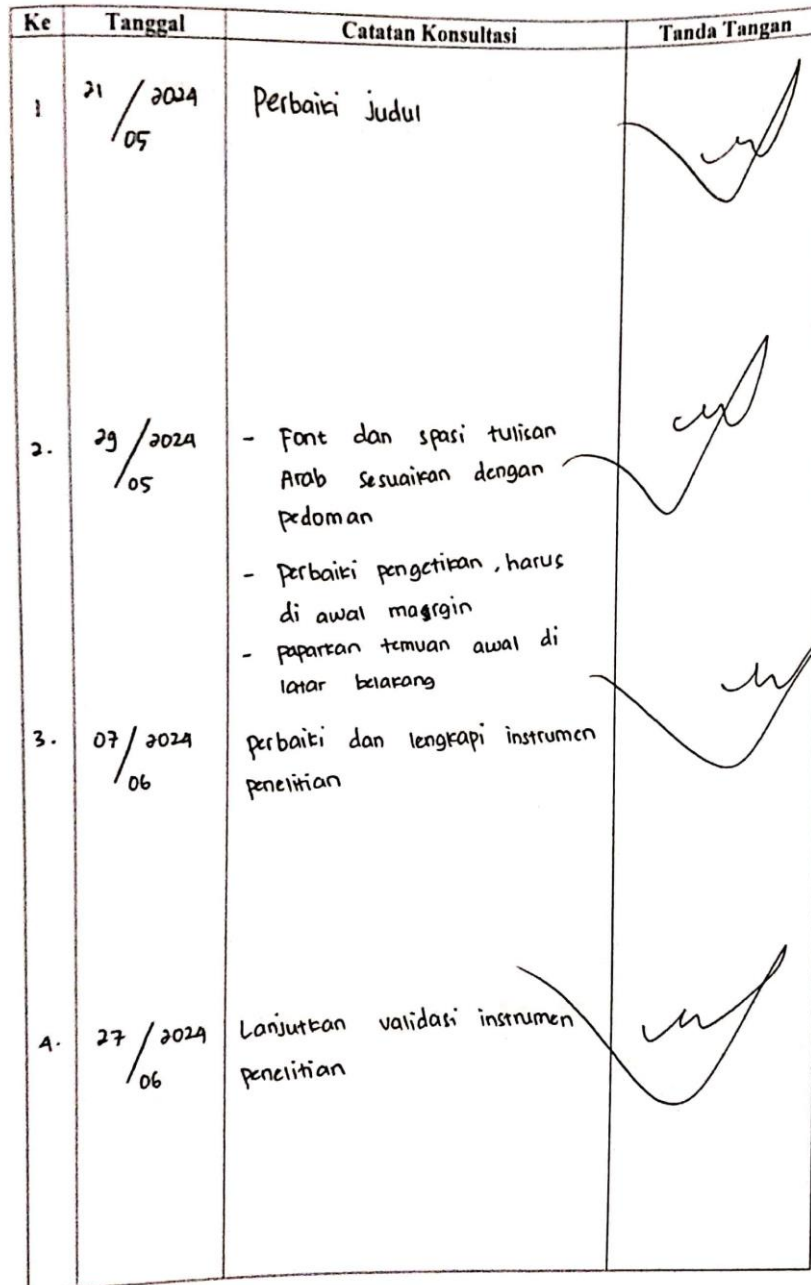 Ke Tanggal Catatan Konsultasi Tanda Tangan
1 21/2024 Perbaiki judul
05
2. 29/2024 - Font dan spasi tulisan
05 Arab sesuaikan dengan
pedoman
- perbaiki pengetikan, harus
di awal masrgin
- paparkan temuan awal di
latar belakang
3. 07/2024 perbaiki dan lengkapi instrumen
06 penelitian
4. 27/2024 Lanjutkan validasi instrumen
06 penelitian